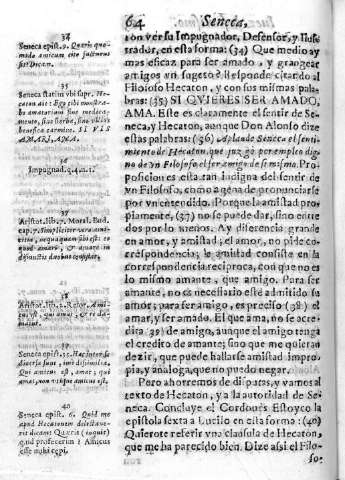 64 Seneca,
34
Seneca epist. 9. Quæris quo-
modo amicum cito facturus
sit? Dicam.
35
Seneca statim vbi supr. He-
caton ait: Ego tibi monstra-
bo amatorium sine medica-
mento, sine herba, sine vllius
benefica carmine. SI VIS
AMARI, AMA.
36
Impugnad.
37
Aristot. lib. 2. Moral. Eud.
cap. 7.
38
Aristot. lib. 2. Retor.
39
Seneca epist. 35.
diversa sunt, imò dissimilia.
Qui amicus est, amat; qui
amat, non vtique amicus est.
40
Seneca epist. 6. Quid me
apud Hecatonem delectave-
rit dicam: Quæris (inquit)
quid profecerim? Amicus
esse mihi cæpi.
ron ver su Impugnador, Defensor, y Ilus-
trador, en esta forma: (34) Que medio ay
mas eficaz para ser amado, y grangear
amigos vn sugeto? Responde citando al
Filosofo Hecaton, y con sus mismas pala-
bras: (35) SI QVIERES SER AMADO,
AMA. Este es claramente el sentir de Se-
neca, y Hecaton, aunque Don Alonso dize
estas palabras: (36) Aplaude Seneca el senti-
miento de Hecaton, que juzgò por empleo dig-
no de vn Filosofo el ser amigo de si mismo. Pro-
posicion es esta tan indigna del sentir de
vn Filosofo, como agena de pronunciarse
por vn entendido. Porque la amistad pro-
piamente, (37) no se puede dar, sino entre
dos por lo menos. Ay diferencia grande
en amor, y amistad; el amor, no pide co-
rrespondencia; le amistad consiste en la
correspondencia reciproca, con que no es
lo mismo amante, que amigo. Para ser
amante, no es necessario estè admitido su
amor; para ser amigo, es preciso (38) el
amar, y ser amado. El que ama, no se acre-
dita (39) de amigo, aunque el amigo tenga
el credito de amante; sino que me quieran
dezir, que puede hallarse amistad impro-
pia, y analoga, que no puedo negar.
Pero ahorremos de disputas, y vamos al
texto de Hecaton, y a la autoridad de Se-
neca. Concluye el Cordoves Estoyco la
epistola sexta a Lucilo en esta forma: (40)
Quierote referir vna clausula de Hecaton,
que me ha parecido bien. Dize assi el Filo-
so-